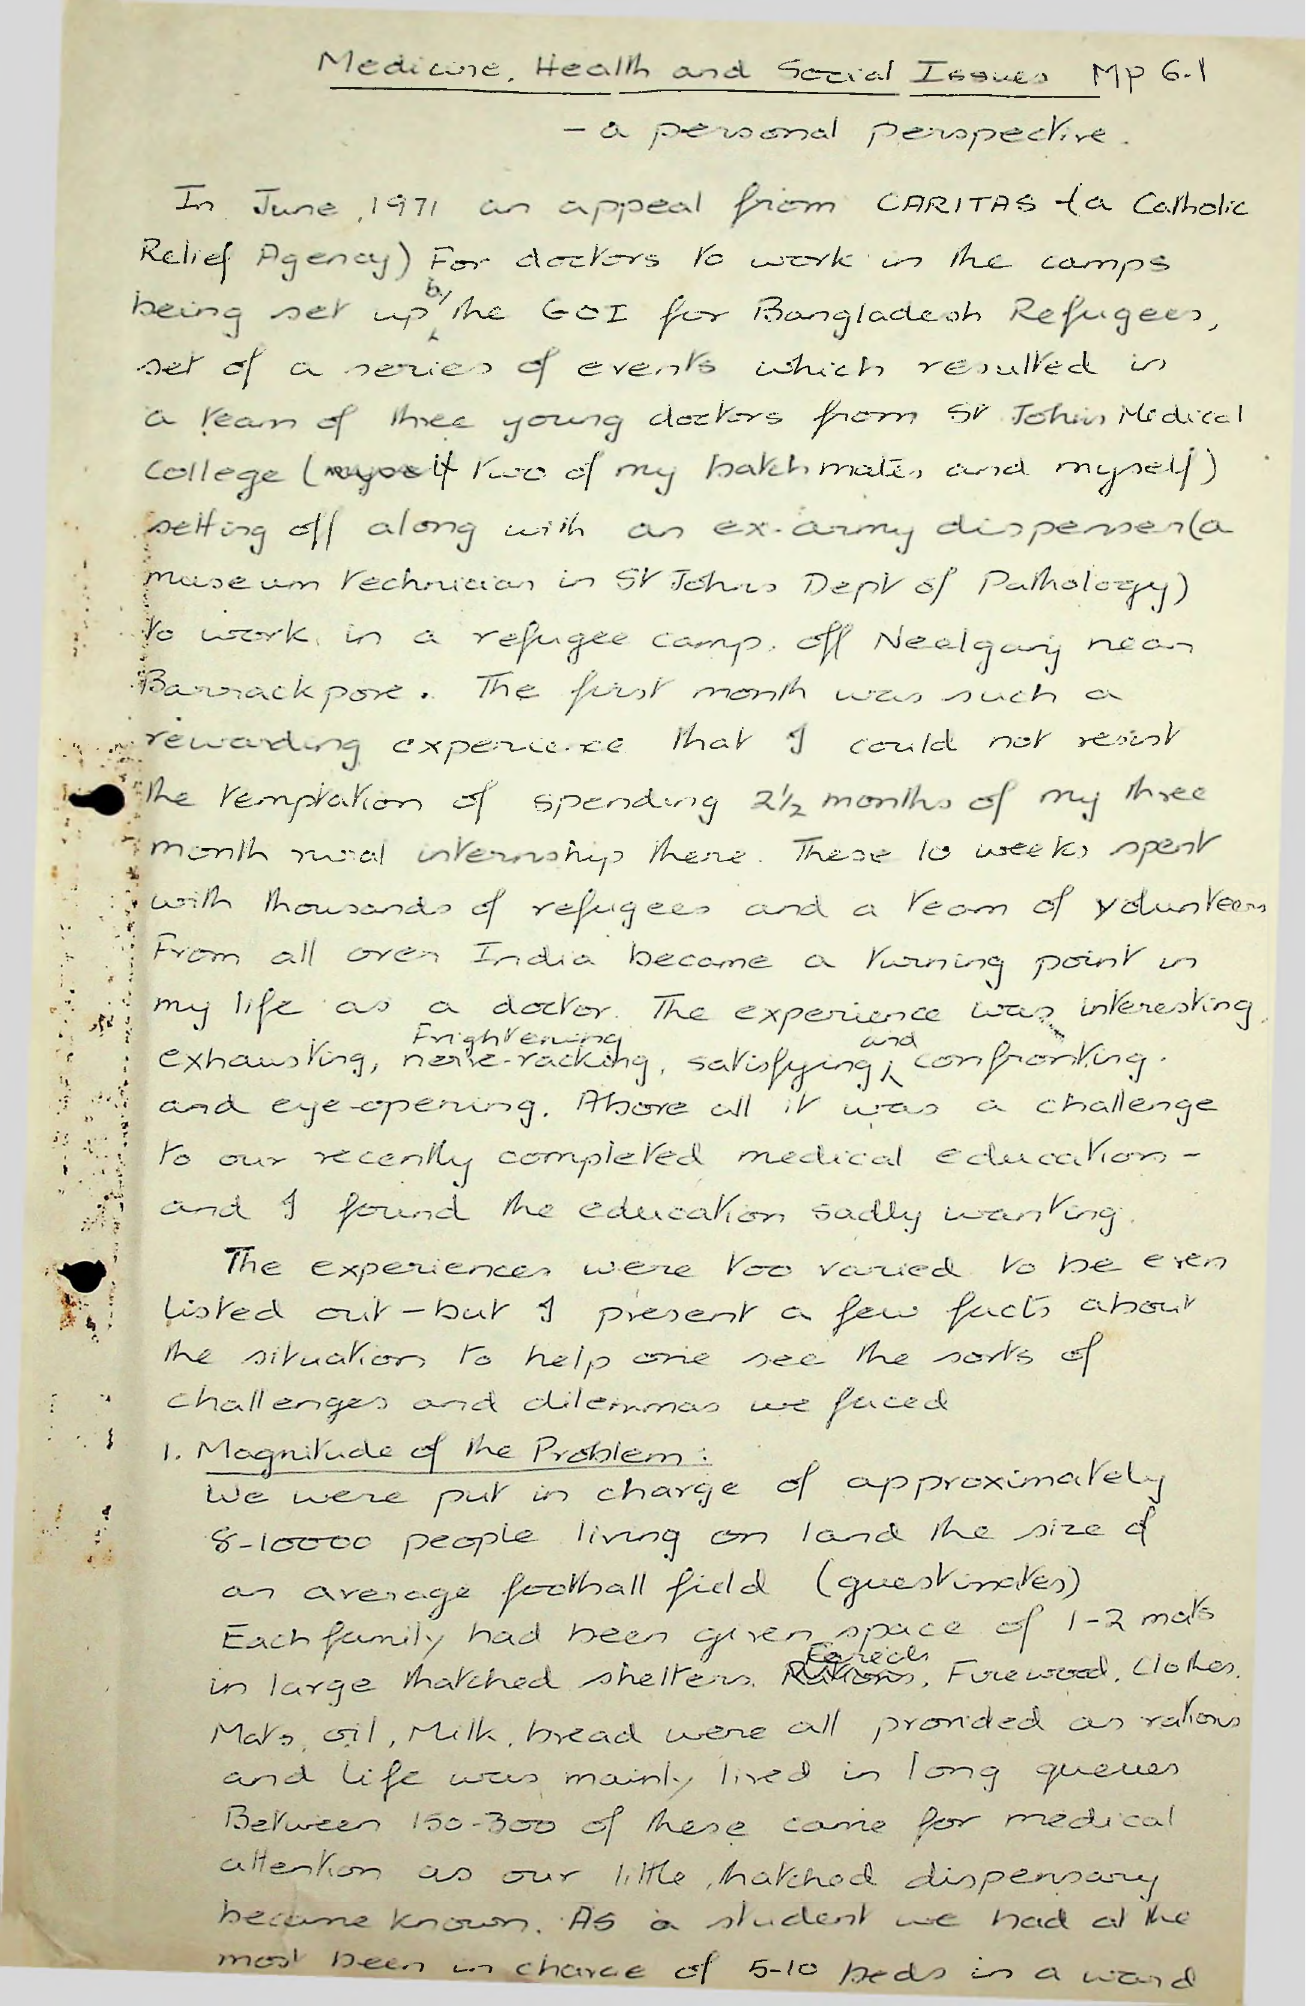 Medicine, Health and Social Issues MP 6.1
- a personal perspective.
In June, 1971 an appeal from CARITAS (a Catholic
Relief Agency) For doctors to work in the camps
being set up by the GOI for Bangladesh Refugees,
set of a series of events which resulted in
a team of three young doctors from St John's Medical
College (two of my batchmates and myself)
setting off along with an ex-army dispenser (a
museum technician in St Johns Dept of Pathology)
to work in a refugee camp off Neelganj near
Barrackpore. The first month was such a
rewarding experience that I could not resist
the temptation of spending 2½ months of my three
month rural internship there. These 10 weeks spent
with thousands of refugees and a team of volunteers
From all over India became a turning point in
my life as a doctor. The experience was interesting,
exhausting, Frightening nerve-racking, satisfying, and confronting.
and eye-opening. Above all it was a challenge
to our recently completed medical education -
and I found the education sadly wanting.
The experiences were too varied to be even
listed out - but I present a few facts about
the situation to help one see the sorts of
challenges and dilemmas we faced
1. Magnitude of the Problem:
We were put in charge of approximately
8-10000 people living on land the size of
an average football field (guestimates)
Each family had been given space of 1-2 mats
in large thatched shelters. Cereals, Firewood, Clothes,
Mats, oil, Milk, bread were all provided as rations
and life was mainly lived in long queues
Between 150-300 of these came for medical
attention as our little thatched dispensary
became known. As a student we had at the
most been in charge of 5-10 beds in a ward